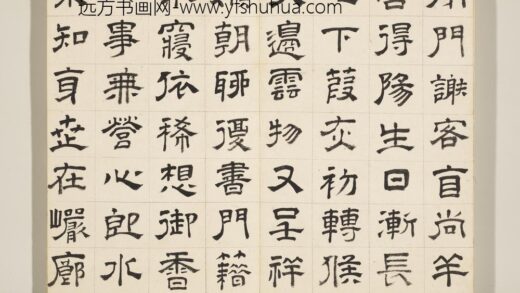 远方书画网 www.yfshuhua.com
門謝客宜尚羊
得陽生日漸長
下葭灰初轉候
邊雲物又呈祥
朝聊復書門籍
寢依稀想御香
事無營心即水
知身世在巖廊